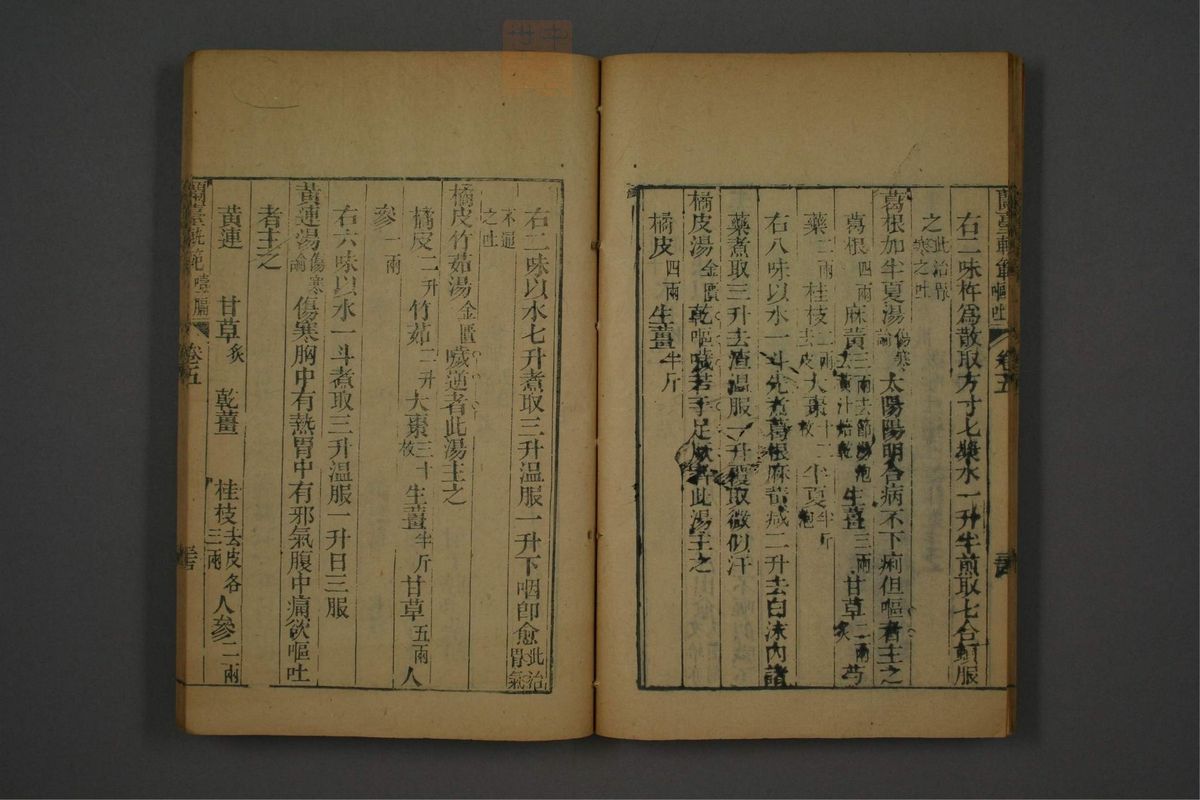 蘭臺軌範 嘔吐 卷五
右二味杵為散取方寸匕漿水一升半煎取七合頓服
之此治胃
寒之吐
葛根加半夏湯傷寒論 太陽陽明合病不下痢但嘔者主之
葛根四兩 麻黃三兩去節湯泡去黃汁焙乾 生薑三兩 甘草二兩炙 芍
藥二兩 桂枝二兩去皮 大棗十二枚 半夏半斤泡
右八味以水一斗先煮葛根麻黃減二升去白沫內諸
藥煮取三升去渣溫服一升覆取微似汗
橘皮湯金匱 乾嘔噦若手足厥者此湯主之
橘皮四兩 生薑半斤
右二味以水七升煮取三升溫服一升下咽即愈此治胃氣
不通
之吐
橘皮竹茹湯金匱 噦逆者此湯主之
橘皮二升 竹茹二升 大棗三十枚 生薑半斤 甘草五兩 人
參一兩
右六味以水一斗煮取三升溫服一升日三服
黃連湯傷寒論 傷寒胸中有熱胃中有邪氣腹中痛欲嘔吐
者主之
黃連 甘草炙 乾薑 桂枝去皮各三兩 人參二兩
蘭臺軌範 噎膈 卷五